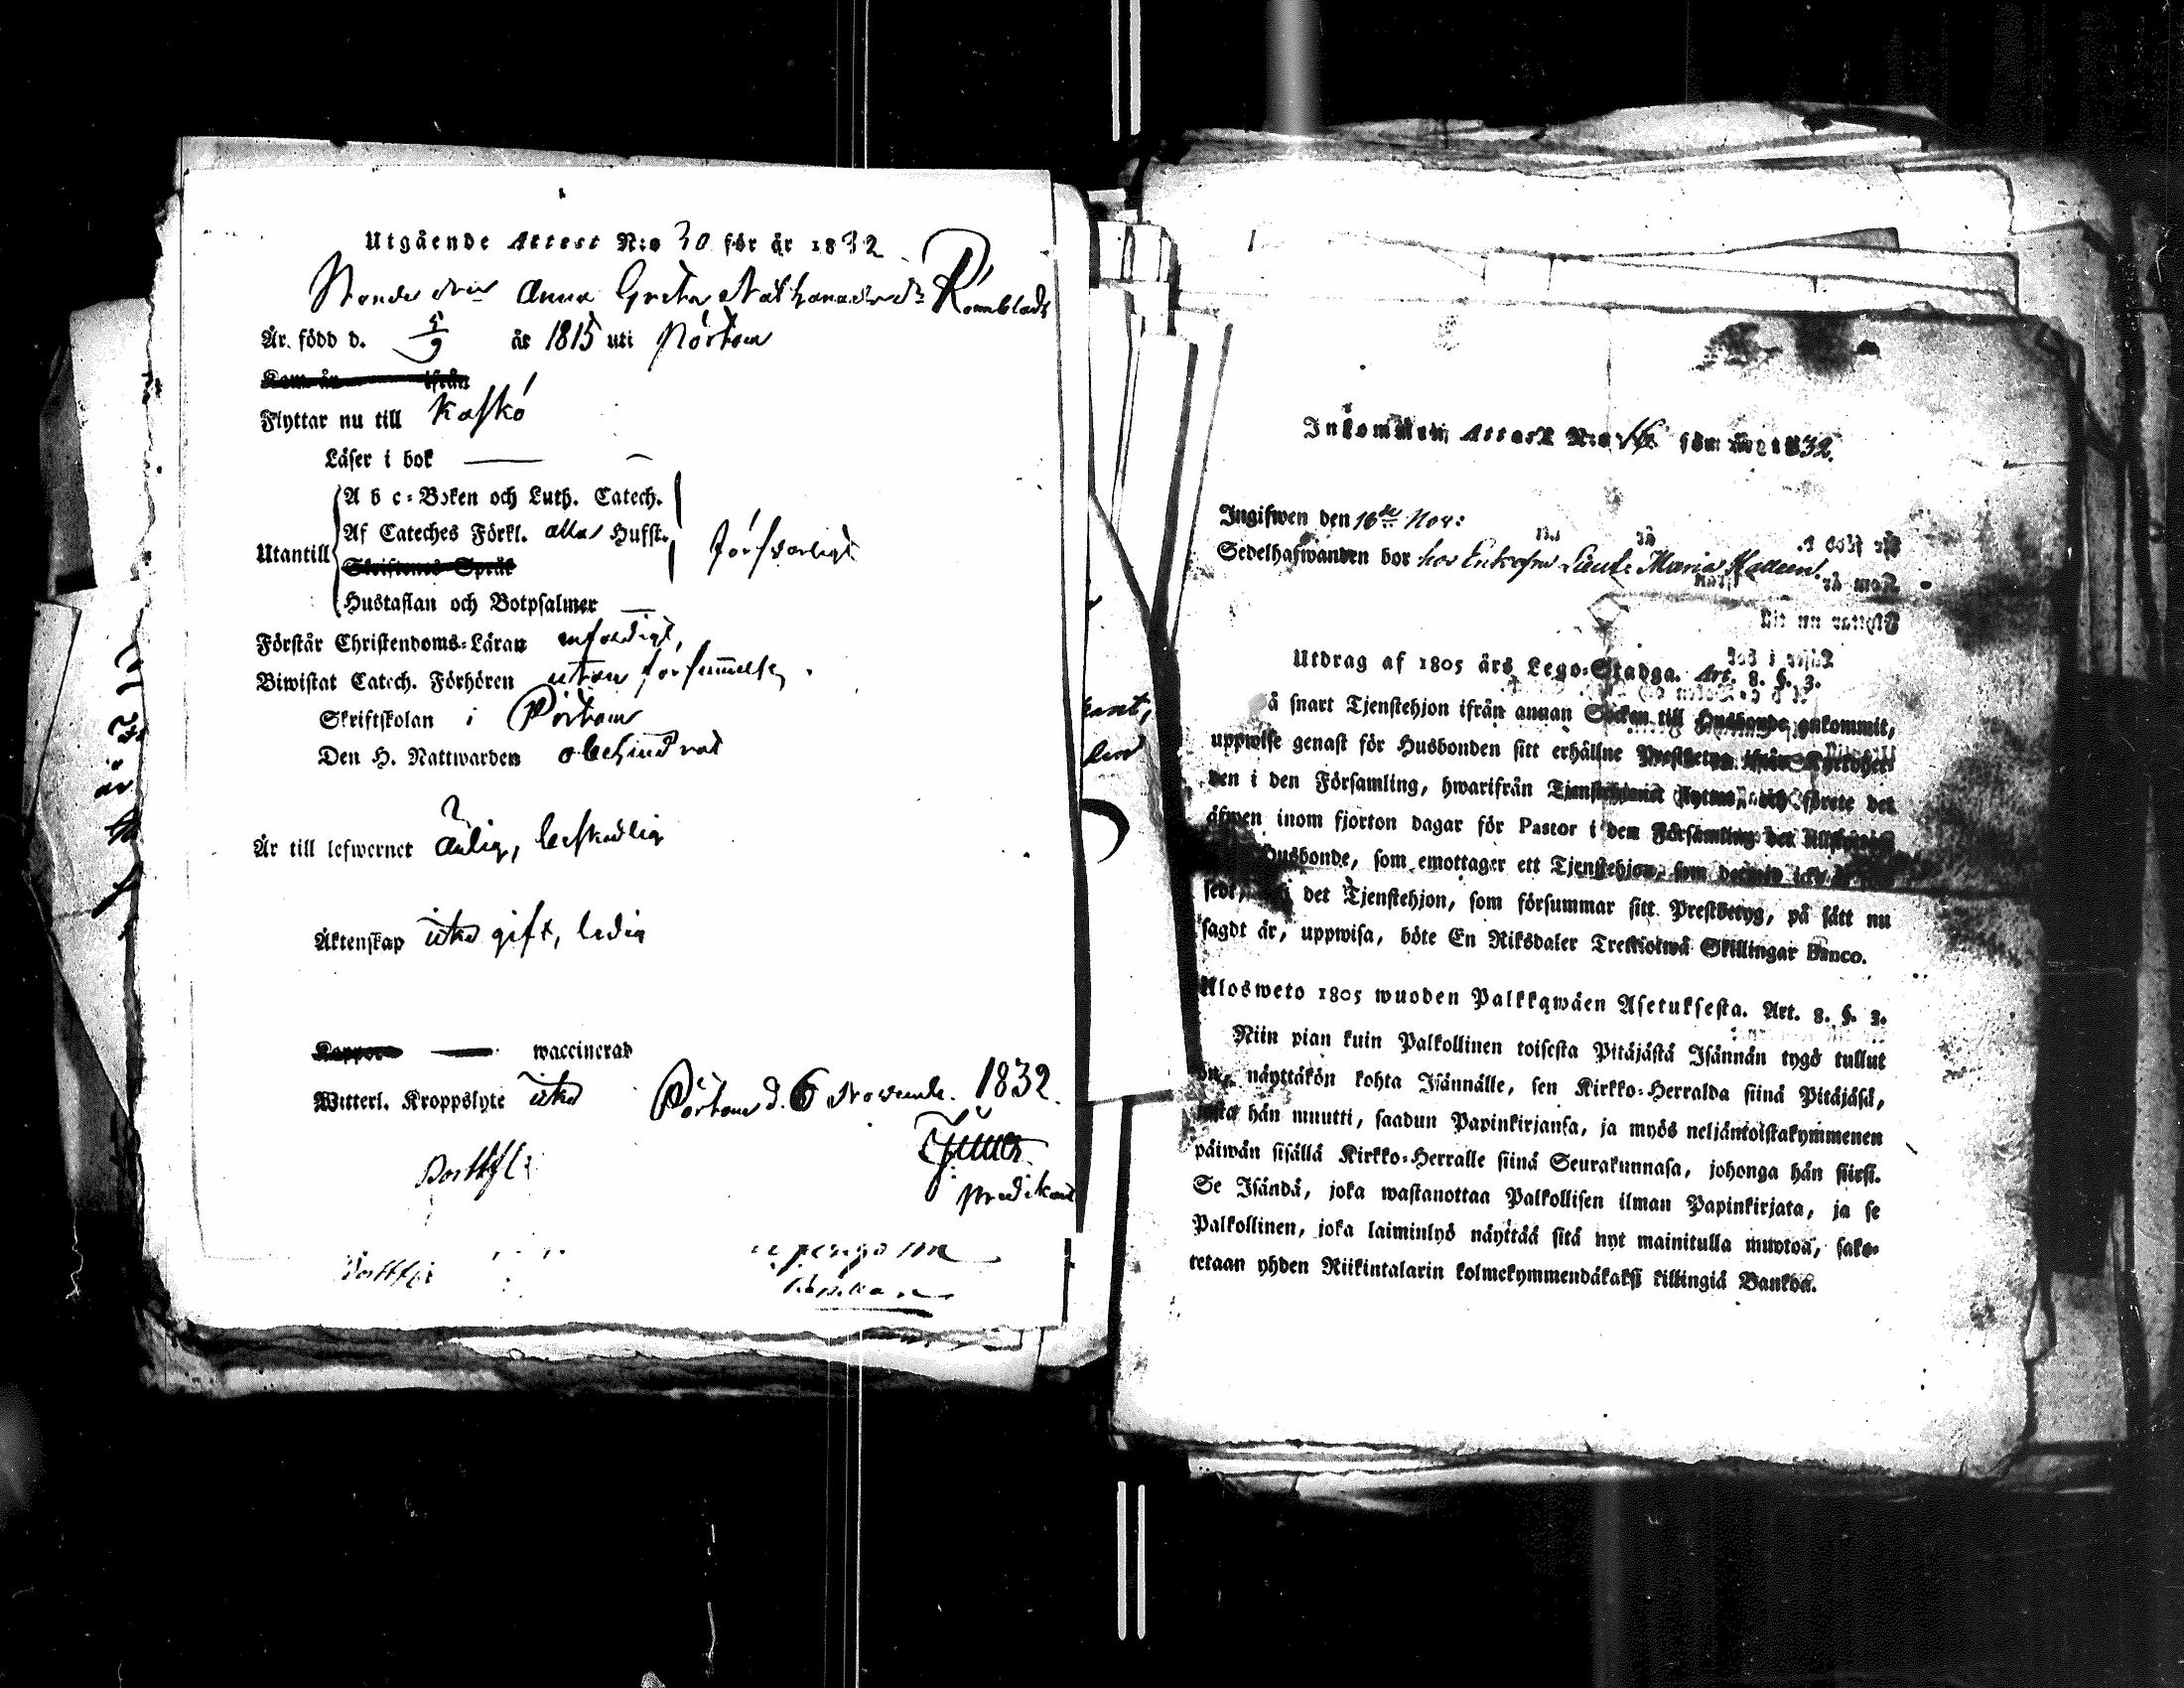 Utgående Attest N:o 30 för år 1832
Anna Greta
Är född d. 5/9 år 1815 uti Pörtom
Kom år ifrån
Flyttar nu till Kaskö
Läser i bok —
Utantill
A b c-Boken och Luth. Catech.
Af Cateches Förkl. alla Hufst.
försvarligt
Skriftenes Språk
Hustaflan och Botpsalmer —
Förstår Christendoms-Läran enfaldigt,
Biwistat Catech. Förhören utan försummelse.
Skriftskolan i Pörtom
Den H. Nattwarden obehindrad
Är till lefwernet ärlig, beskedlig
Äktenskap icke gift, ledig
Koppor — waccinerad
Witterl. Kroppslyte icke
Pörtom d. 6 Novemb. 1832.
Predikant
Inkommen Attest N:o 16 för år 1832.
Ingifwen den 16de Nov:
Sedelhafwanden bor hos Enkefru Lieut: Maria
Utdrag af 1805 års Lego-Stadga. Art. 8. §. 3.
Så snart Tjenstehjon ifrån annan Socken till Husbonde ankommit,
uppwise genast för Husbonden sitt erhållne Prestbetyg ifrån Kyrkoher-
den i den Församling, hwarifrån Tjenstehjonet flyttat, och förete det
äfwen inom fjorton dagar för Pastor i den Församling det
Husbonde, som emottager ett Tjenstehjon, som
sedt, det Tjenstehjon, som försummar sitt Prestbetyg, på sätt nu
sagdt är, uppwisa, böte En Riksdaler Trettiotwå Skillingar Banco.
Ulosweto 1805 wuoden Palkkawäen Asetuksesta. Art. 8. §. 3.
Niin pian kuin Palkollinen toisesta Pitäjästä Isännän tygö tullut
on, näyttäkön kohta Isännälle, sen Kirkko-Herralda siinä Pitäjäsä,
josta hän muutti, saadun Papinkirjansa, ja myös neljäntoistakymmenen
päiwän sisällä Kirkko-Herralle siinä Seurakunnasa, johonga hän siirsi.
Se Isändä, joka wastanottaa Palkollisen ilman Papinkirjata, ja se
Palkollinen, joka laiminlyö näyttää sitä nyt mainitulla muotoa, sako-
tetaan yhden Riikintalarin kolmekymmendäkaksi killingiä Bankoa.